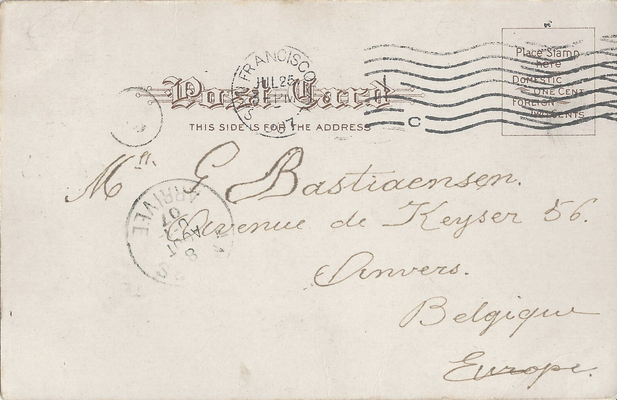 S. FRANCISCO
JUL 25
PM
07
C
Place Stamp
here
DOMESTIC
ONE CENT
FOREIGN
TWO CENTS
Post Card
THIS SIDE IS FOR THE ADDRESS
G Bastiaensen.
avenue de Keyser 56.
Anvers.
Belgique
Europe.
ARRIVÉE
8
AOUT
07